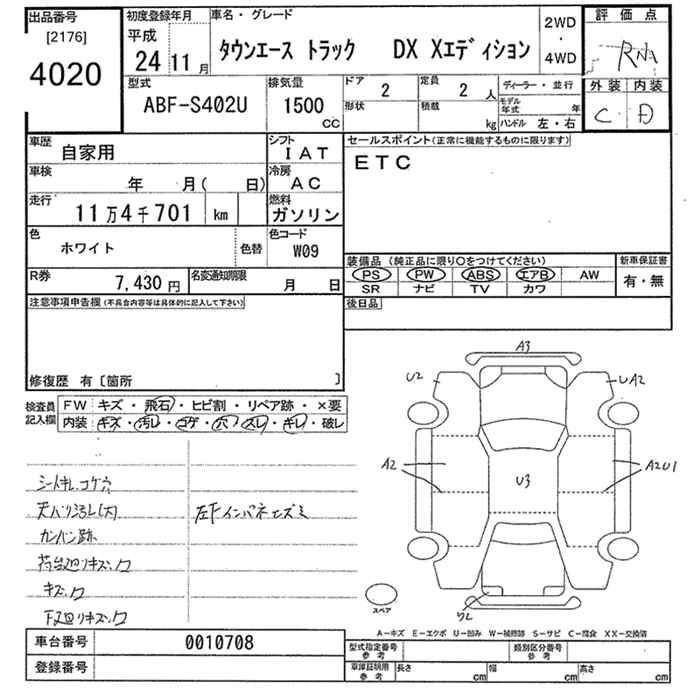 出品番号
[2176]
4020
初度登録年月
平成
24 11月
車名・グレード
タウンエース トラック DX Xエディション
2WD
・
4WD
評価点
RA
外装 内装
C D
型式
ABF-S402U
排気量
1500
CC
ドア
2
形状
定員
2人
積載
kg
ディーラー・並行
モデル年式 年
ハンドル 左・右
車歴
自家用
シフト
IAT
車検
年 月( 日)
冷房
AC
走行
11万4千701 km
燃料
ガソリン
色
ホワイト
色替
色コード
W09
R券
7,430円
名変通知期限
月 日
セールスポイント(正常に機能するものに限ります)
ETC
装備品(純正品に限り○をつけてください)
PS PW ABS エアB AW
SR ナビ TV カワ
新車保証書
有・無
後日品
注意事項申告欄(不具合内容等は具体的に記入して下さい)
修復歴 有〔箇所 〕
検査員記入欄
FW キズ・飛石・ヒビ割・リペア跡・×要
内装 キズ・汚レ・コゲ・穴・スレ・キレ・破レ
シートキレ、コゲ穴
天バリ汚レ(大)
カンバン跡
荷台廻リキズ、ワ
キズ、ワ
下廻リキズ、ワ
左下インパネ
A3
U2
UA2
A2
U3
A2U1
ワレ
スペア
A-キズ E-エクボ U-凹み W-補修跡 S-サビ C-腐食 XX-交換済
車台番号
0010708
登録番号
型式指定番号
参考
類別区分番号
参考
車庫証明用
参考
長さ cm 幅 cm 高さ cm